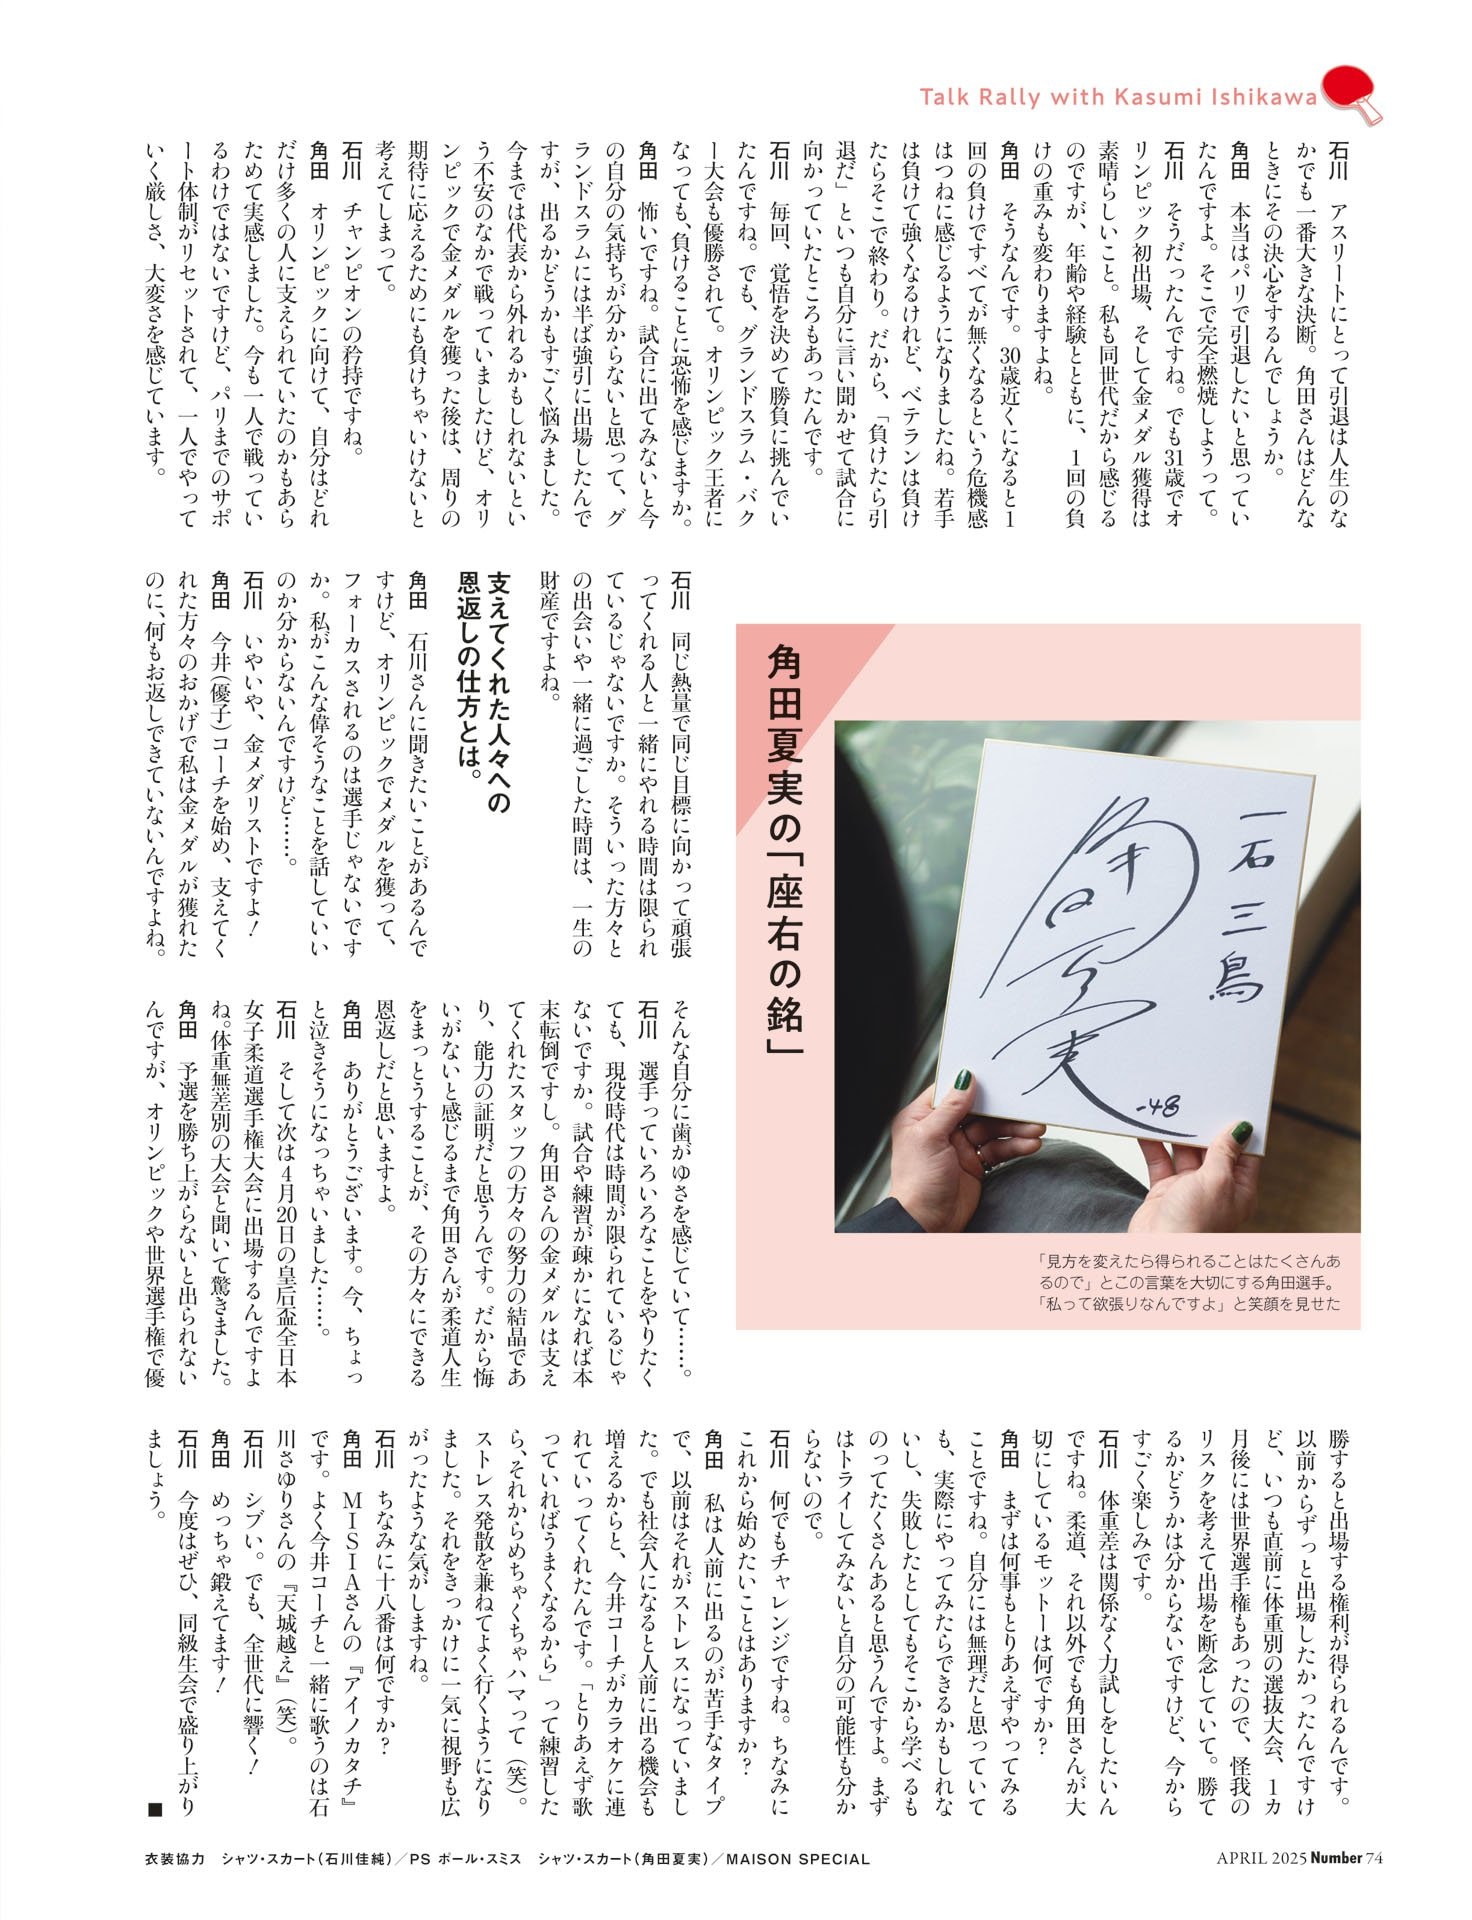 Talk Rally with Kasumi Ishikawa
石川　アスリートにとって引退は人生のな
かでも一番大きな決断。角田さんはどんな
ときにその決心をするんでしょうか。
角田　本当はパリで引退したいと思ってい
たんですよ。そこで完全燃焼しようって。
石川　そうだったんですね。でも31歳でオ
リンピック初出場、そして金メダル獲得は
素晴らしいこと。私も同世代だから感じる
のですが、年齢や経験とともに、1回の負
けの重みも変わりますよね。
角田　そうなんです。30歳近くになると1
回の負けですべてが無くなるという危機感
はつねに感じるようになりましたね。若手
は負けて強くなるけれど、ベテランは負け
たらそこで終わり。だから、「負けたら引
退だ」といつも自分に言い聞かせて試合に
向かっていたところもあったんです。
石川　毎回、覚悟を決めて勝負に挑んでい
たんですね。でも、グランドスラム・バク
ー大会も優勝されて。オリンピック王者に
なっても、負けることに恐怖を感じますか。
角田　怖いですね。試合に出てみないと今
の自分の気持ちが分からないと思って、グ
ランドスラムには半ば強引に出場したんで
すが、出るかどうかもすごく悩みました。
今までは代表から外れるかもしれないとい
う不安のなかで戦っていましたけど、オリ
ンピックで金メダルを獲った後は、周りの
期待に応えるためにも負けちゃいけないと
考えてしまって。
石川　チャンピオンの矜持ですね。
角田　オリンピックに向けて、自分はどれ
だけ多くの人に支えられていたのかもあら
ためて実感しました。今も一人で戦ってい
るわけではないですけど、パリまでのサポ
ート体制がリセットされて、一人でやって
いく厳しさ、大変さを感じています。
石川　同じ熱量で同じ目標に向かって頑張
ってくれる人と一緒にやれる時間は限られ
ているじゃないですか。そういった方々と
の出会いや一緒に過ごした時間は、一生の
財産ですよね。
支えてくれた人々への
恩返しの仕方とは。
角田　石川さんに聞きたいことがあるんで
すけど、オリンピックでメダルを獲って、
フォーカスされるのは選手じゃないです
か。私がこんな偉そうなことを話していい
のか分からないんですけど……。
石川　いやいや、金メダリストですよ！
角田　今井(優子)コーチを始め、支えてく
れた方々のおかげで私は金メダルが獲れた
のに、何もお返しできていないんですよね。
そんな自分に歯がゆさを感じていて……。
石川　選手っていろいろなことをやりたく
ても、現役時代は時間が限られているじゃ
ないですか。試合や練習が疎かになれば本
末転倒ですし。角田さんの金メダルは支え
てくれたスタッフの方々の努力の結晶であ
り、能力の証明だと思うんです。だから悔
いがないと感じるまで角田さんが柔道人生
をまっとうすることが、その方々にできる
恩返しだと思いますよ。
角田　ありがとうございます。今、ちょっ
と泣きそうになっちゃいました……。
石川　そして次は4月20日の皇后盃全日本
女子柔道選手権大会に出場するんですよ
ね。体重無差別の大会と聞いて驚きました。
角田　予選を勝ち上がらないと出られない
んですが、オリンピックや世界選手権で優
角田夏実の「座右の銘」
一石三鳥
角田夏実
-48
「見方を変えたら得られることはたくさんあ
るので」とこの言葉を大切にする角田選手。
「私って欲張りなんですよ」と笑顔を見せた
勝すると出場する権利が得られるんです。
以前からずっと出場したかったんですけ
ど、いつも直前に体重別の選抜大会、1カ
月後には世界選手権もあったので、怪我の
リスクを考えて出場を断念していて。勝て
るかどうかは分からないですけど、今から
すごく楽しみです。
石川　体重差は関係なく力試しをしたいん
ですね。柔道、それ以外でも角田さんが大
切にしているモットーは何ですか？
角田　まずは何事もとりあえずやってみる
ことですね。自分には無理だと思っていて
も、実際にやってみたらできるかもしれな
いし、失敗したとしてもそこから学べるも
のってたくさんあると思うんですよ。まず
はトライしてみないと自分の可能性も分か
らないので。
石川　何でもチャレンジですね。ちなみに
これから始めたいことはありますか？
角田　私は人前に出るのが苦手なタイプ
で、以前はそれがストレスになっていまし
た。でも社会人になると人前に出る機会も
増えるからと、今井コーチがカラオケに連
れていってくれたんです。「とりあえず歌
っていればうまくなるから」って練習した
ら、それからめちゃくちゃハマって（笑）。
ストレス発散を兼ねてよく行くようになり
ました。それをきっかけに一気に視野も広
がったような気がしますね。
石川　ちなみに十八番は何ですか？
角田　MISIAさんの『アイノカタチ』
です。よく今井コーチと一緒に歌うのは石
川さゆりさんの『天城越え』（笑）。
石川　シブい。でも、全世代に響く！
角田　めっちゃ鍛えてます！
石川　今度はぜひ、同級生会で盛り上がり
ましょう。
■
衣装協力　シャツ・スカート(石川佳純)／PS ポール・スミス　シャツ・スカート(角田夏実)／MAISON SPECIAL
APRIL 2025 Number 74